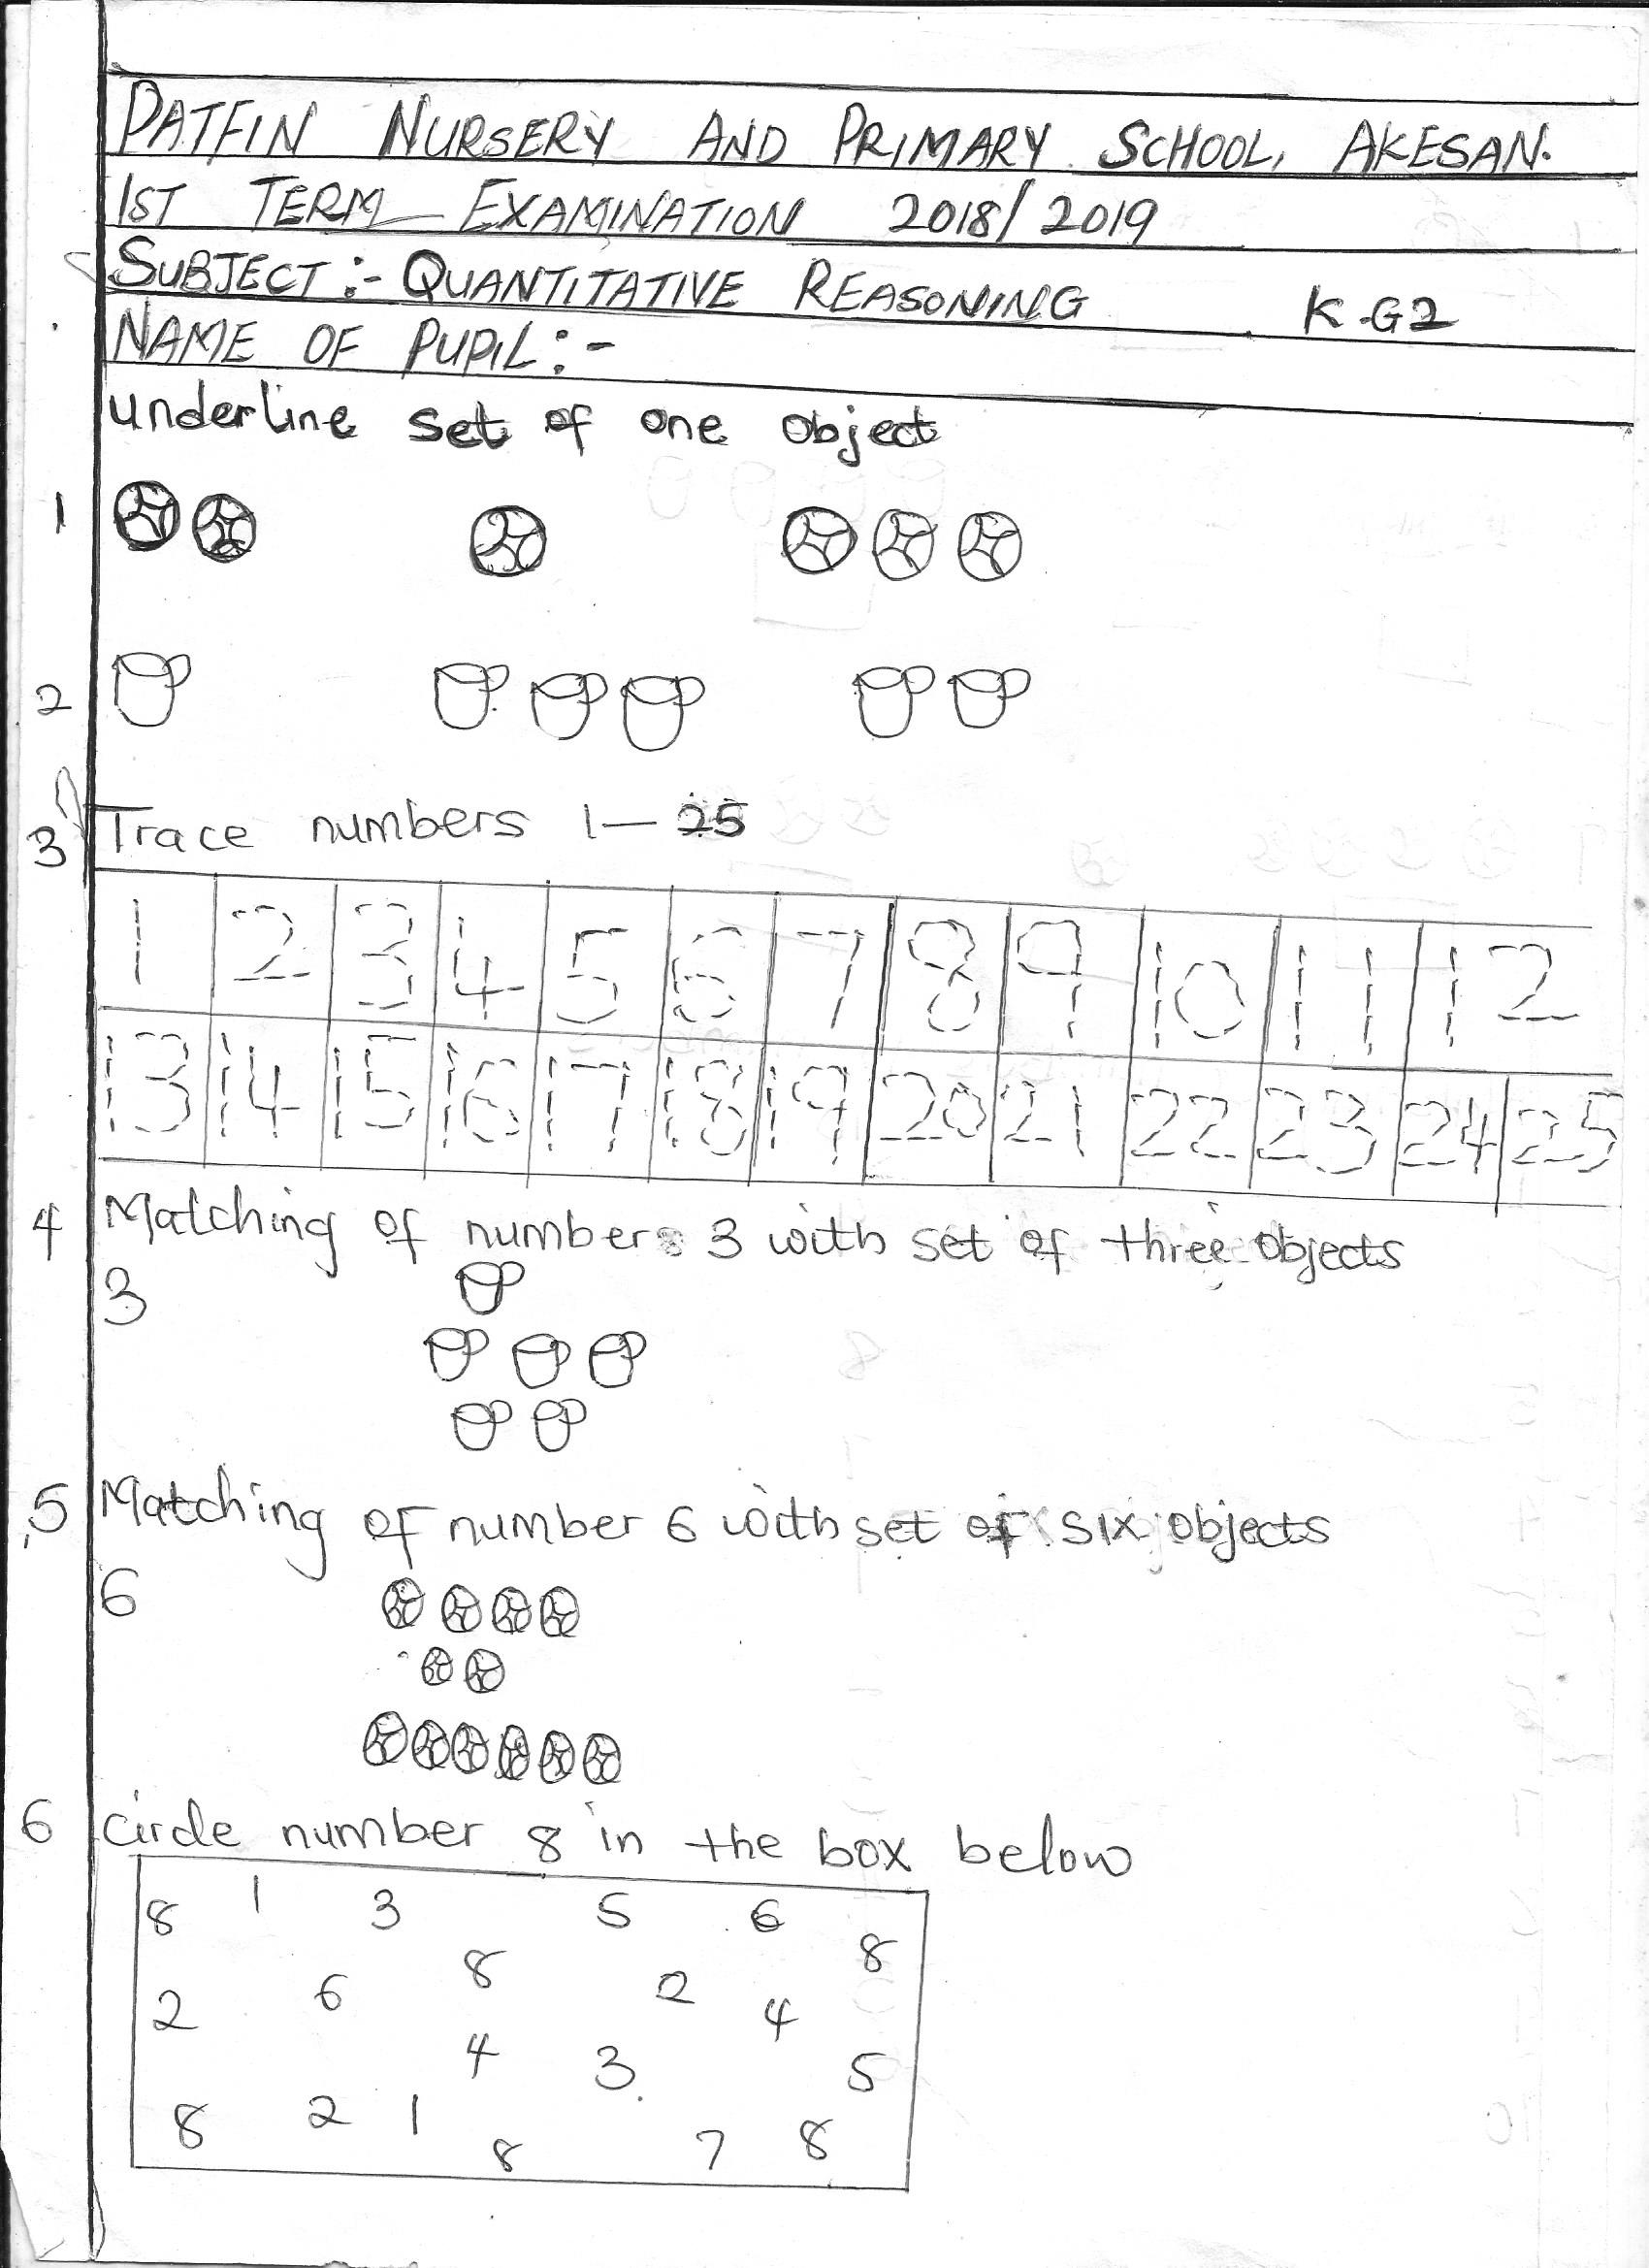 PATFIN NURSERY AND PRIMARY SCHOOL, AKESAN.
1ST TERM EXAMINATION 2018/2019
SUBJECT:- QUANTITATIVE REASONING K-G2
NAME OF PUPIL:-
underline set of one object
1
2
3 Trace numbers 1—25
1 2 3 4 5 6 7 8 9 10 11 12
13 14 15 16 17 18 19 20 21 22 23 24 25
4 Matching of number 3 with set of three objects
3
5 Matching of number 6 with set of six objects
6
6 circle number 8 in the box below
8 1 3 5 6
8 8
2 6 2 4
4 3 5
8 2 1 8 7 8